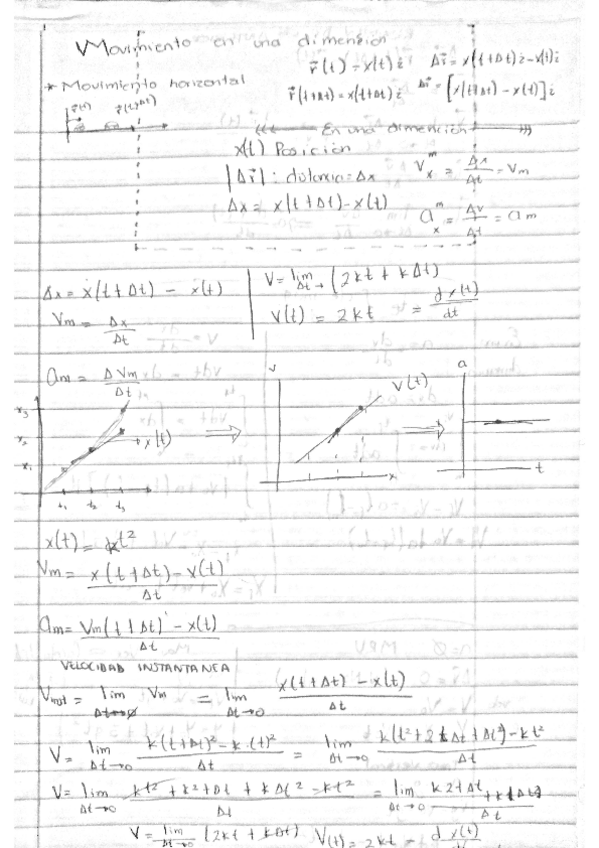 Movimiento en una dimensión
* Movimiento horizontal
r⃗(t) r⃗(t+Δt)
r⃗(t) = x(t) i Δr⃗ = x(t+Δt) i - x(t) i
r⃗(t+Δt) = x(t+Δt) i Δr⃗ = [x(t+Δt) - x(t)] i
En una dimención
x(t) Posición
|Δr⃗| : distancia = Δx
Δx = x(t+Δt) - x(t)
V^m_x = Δx/Δt = Vm
a^m_x = ΔV/Δt = am
Δx = x(t+Δt) - x(t)
Vm = Δx/Δt
am = ΔVm/Δt
V = lim Δt→ (2kt + kΔt)
V(t) = 2kt = dx(t)/dt
x₃ x₂ x₁ x(t) t₁ t₂ t₃
v V(t) x
a t
x(t) = kt²
Vm = x(t+Δt) - x(t) / Δt
am = Vm(t+Δt) - x(t) / Δt
VELOCIDAD INSTANTANEA
Vinst = lim Δt→0 Vm = lim Δt→0 x(t+Δt) - x(t) / Δt
V = lim Δt→0 k(t+Δt)² - k·(t)² / Δt = lim Δt→0 k(t² + 2tΔt + Δt²) - kt² / Δt
V = lim Δt→0 kt² + k2tΔt + kΔt² - kt² / Δt = lim Δt→0 k2tΔt + kΔt² / Δt
V = lim Δt→0 (2kt + kΔt) V(t) = 2kt = dx(t)/dt